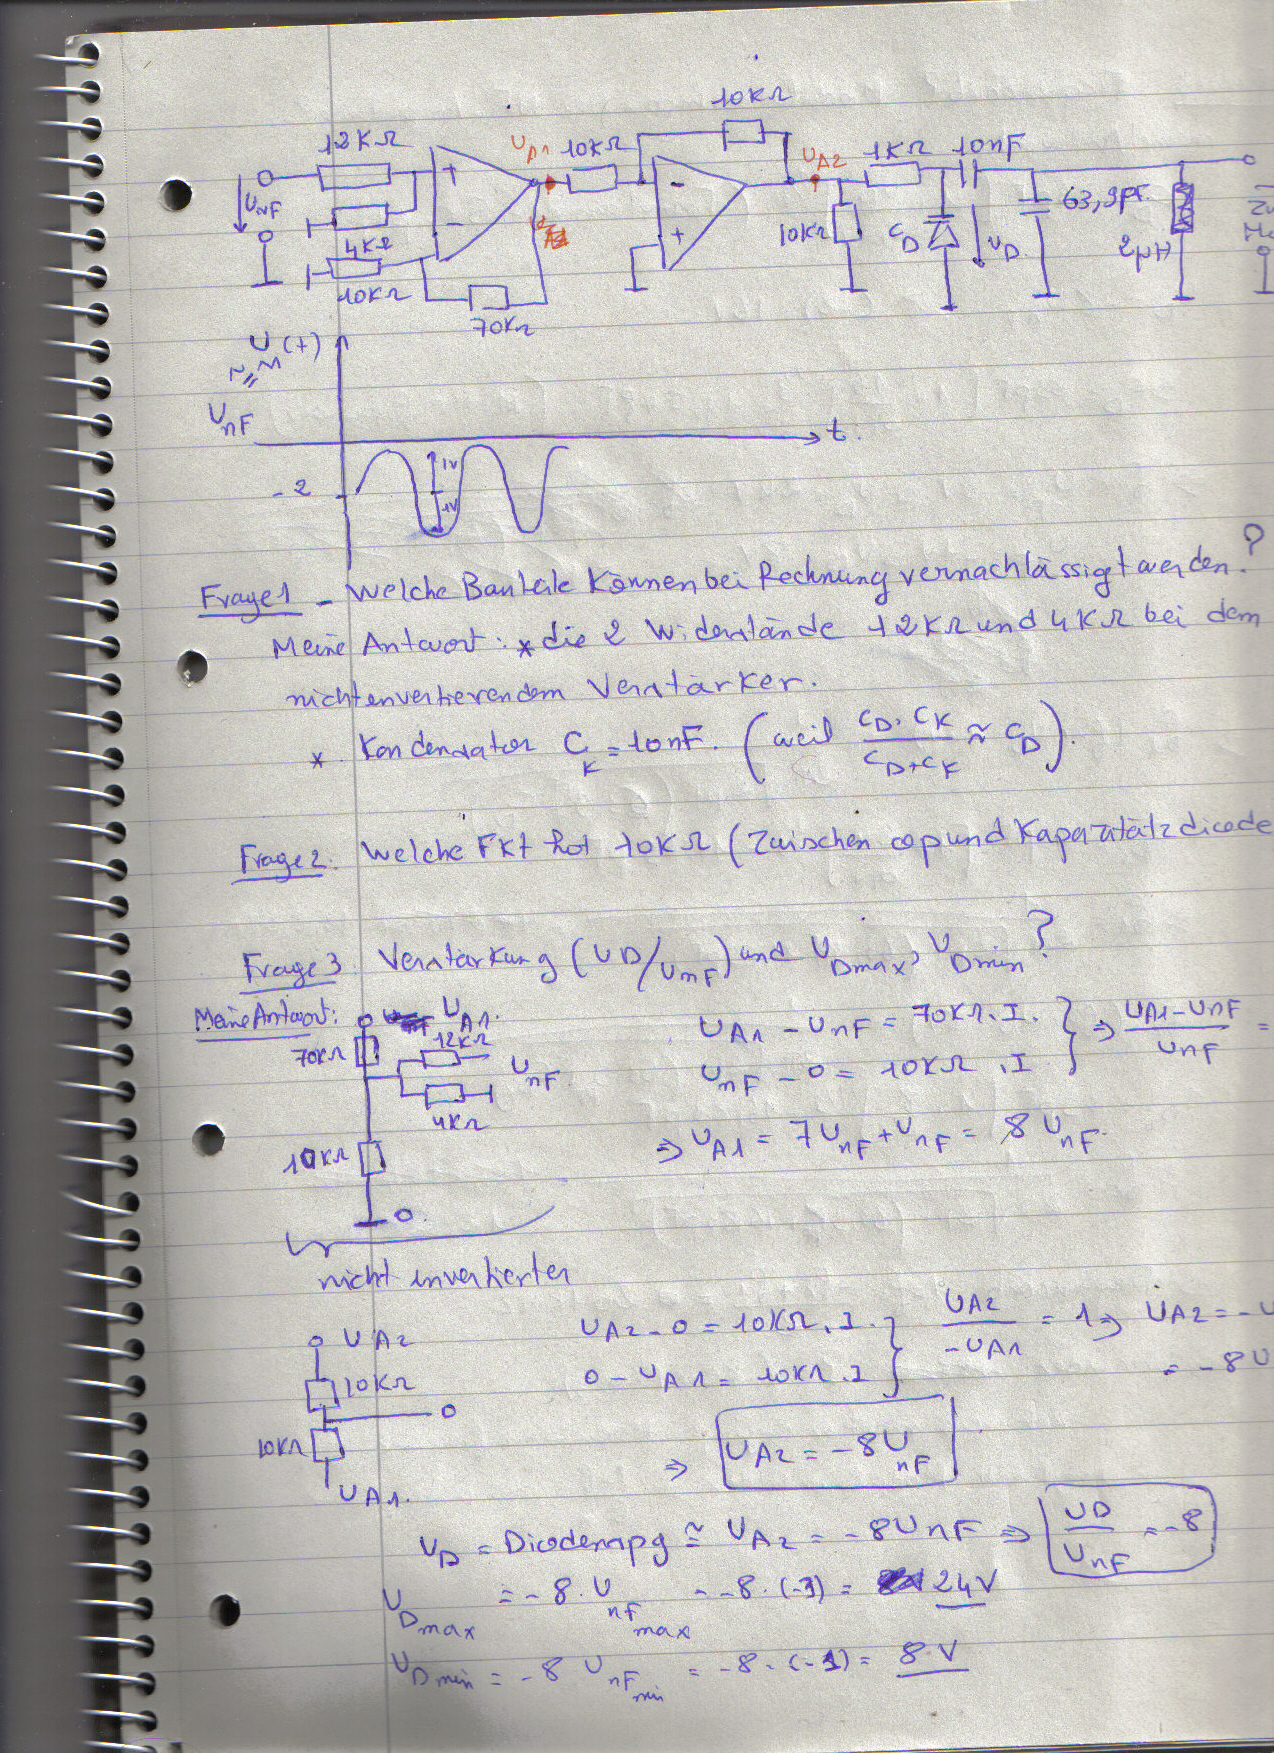 10KΩ
12KΩ UA1 10KΩ UA2 1KΩ 10nF
+ - 63,9pF
UnF 10KΩ CD UD 2µH
4KΩ - +
10KΩ
70KΩ
U(t)
UnF t
1V
-2 1V
Frage1 - Welche Bauteile können bei Rechnung vernachlässigt werden?
Meine Antwort: * die 2 Widerstände 12KΩ und 4KΩ bei dem
nichtenvertierendem Verstärker.
* Kondensator CK = 10nF. (weil CD.CK / CD+CK ≈ CD).
Frage2: Welche FKt hat 10KΩ (Zwischen op und Kapazitätzdiode
Frage3 Verstärkung (UD/UnF) und UDmax, UDmin?
Meine Antwort: UA1. UA1 - UnF = 70KΩ.I. } ⇒ UA1-UnF / UnF =
70KΩ 12KΩ UnF UnF - 0 = 10KΩ.I
4KΩ
10KΩ ⇒ UA1 = 7UnF + UnF = 8 UnF.
0.
nicht invertierter
UA2 UA2 - 0 = 10KΩ.I. } UA2 / -UA1 = 1 ⇒ UA2 = -U
10KΩ 0 - UA1 = 10KΩ.I = -8U
0
10KΩ ⇒ UA2 = -8UnF
UA1.
UD = Diodenspg ≅ UA2 = -8UnF ⇒ UD / UnF = -8
UDmax = -8.UnFmax = -8.(-3) = 24V
UDmin = -8 UnFmin = -8.(-1) = 8V